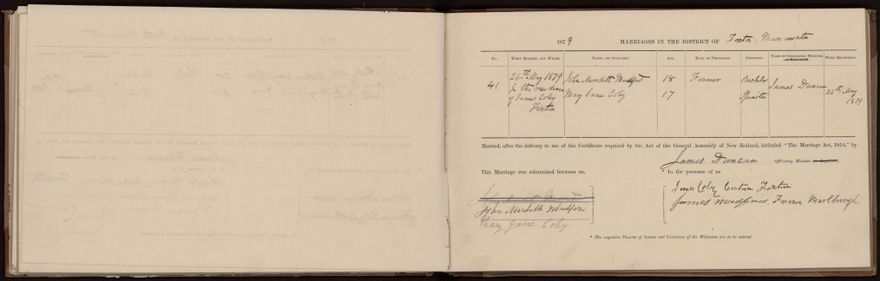 1879 MARRIAGES IN THE DISTRICT OF Foxton, Manawatu
No. WHEN MARRIED, AND WHERE. NAMES AND SURNAMES. AGE. RANK OR PROFESSION. CONDITION. NAME OF OFFICIATING MINISTER WHEN REGISTERED.
41 26th May 1879 John Meredith Mudford 18 Farmer Bachelor James Duncan 26th May 1879
In the residence Mary Jane Coley 17 Spinster
of James Coley
Foxton
Married, after the delivery to me of the Certificate required by the Act of the General Assembly of New Zealand, intituled "The Marriage Act, 1854," by
James Duncan Officiating Minister
This Marriage was solemnized between us, * In the presence of us
James Coley Foxton
John Meredith Mudford James Mudford, Farmer Marlborough
Mary Jane Coley
* The respective PLACES OF ABODE and CALLINGS of the WITNESSES are to be entered.